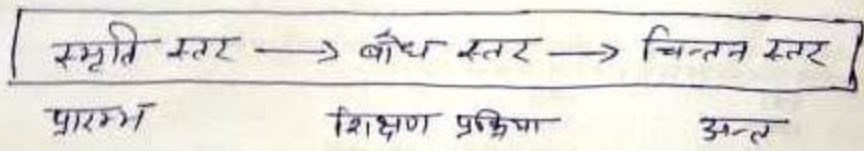 स्मृति स्तर → बोध स्तर → चिन्तन स्तर
प्रारम्भ शिक्षण प्रक्रिया अन्त